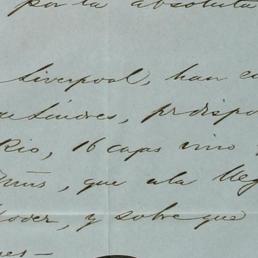 por la absoluta
Liverpool, han
Londres, predispo
Rio, 16 cajas vino
que a la lleg
poder, y sobre que